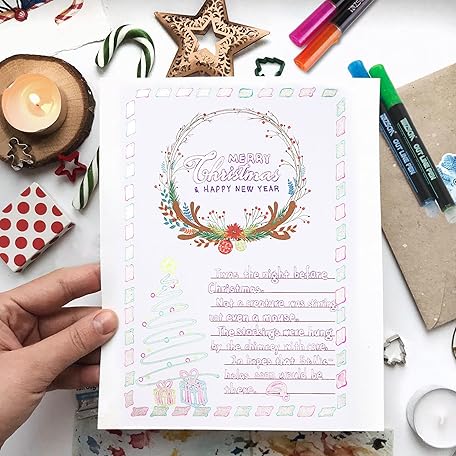 MERRY
Christmas
& HAPPY NEW YEAR
Twas the night before
Christmas.
Not a creature was stirring
not even a mouse.
The stockings were hung
by the chimney with care.
In hopes that St. Nic-
holas soon would be
there.
OUT LINE PEN